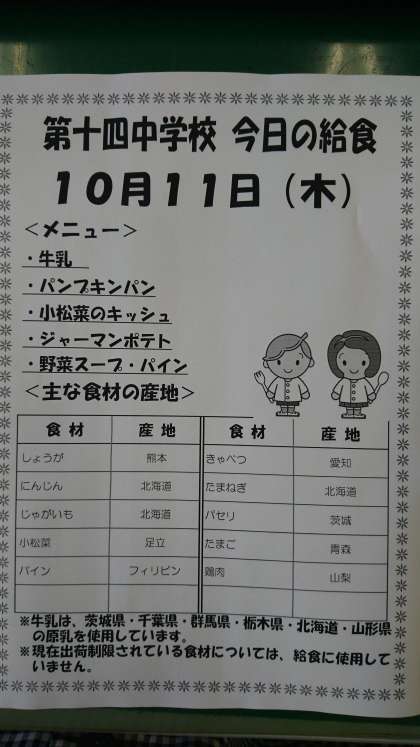 第十四中学校 今日の給食
10月11日（木）
＜メニュー＞
・牛乳
・パンプキンパン
・小松菜のキッシュ
・ジャーマンポテト
・野菜スープ・パイン
＜主な食材の産地＞
食材 産地 食材 産地
しょうが 熊本 きゃべつ 愛知
にんじん 北海道 たまねぎ 北海道
じゃがいも 北海道 パセリ 茨城
小松菜 足立 たまご 青森
パイン フィリピン 鶏肉 山梨
※牛乳は、茨城県・千葉県・群馬県・栃木県・北海道・山形県
の原乳を使用しています。
※現在出荷制限されている食材については、給食に使用して
いません。